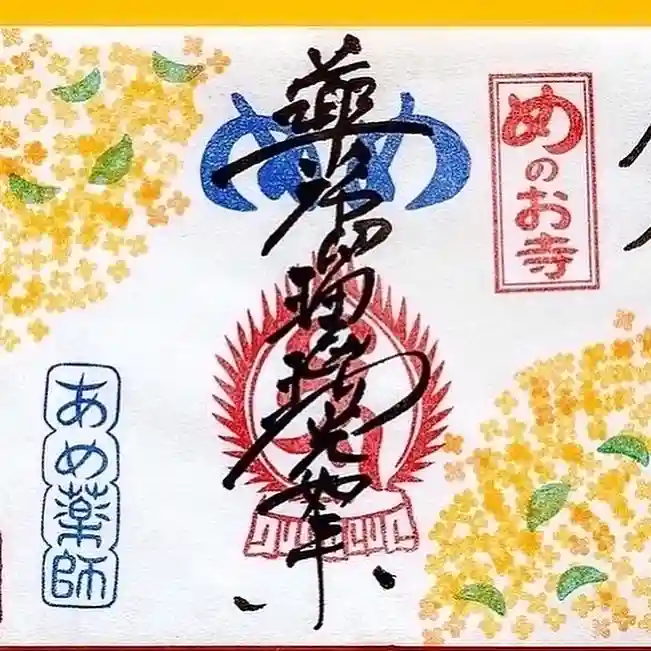 めのお寺
めめ
薬師瑠璃光如来
あめ薬師